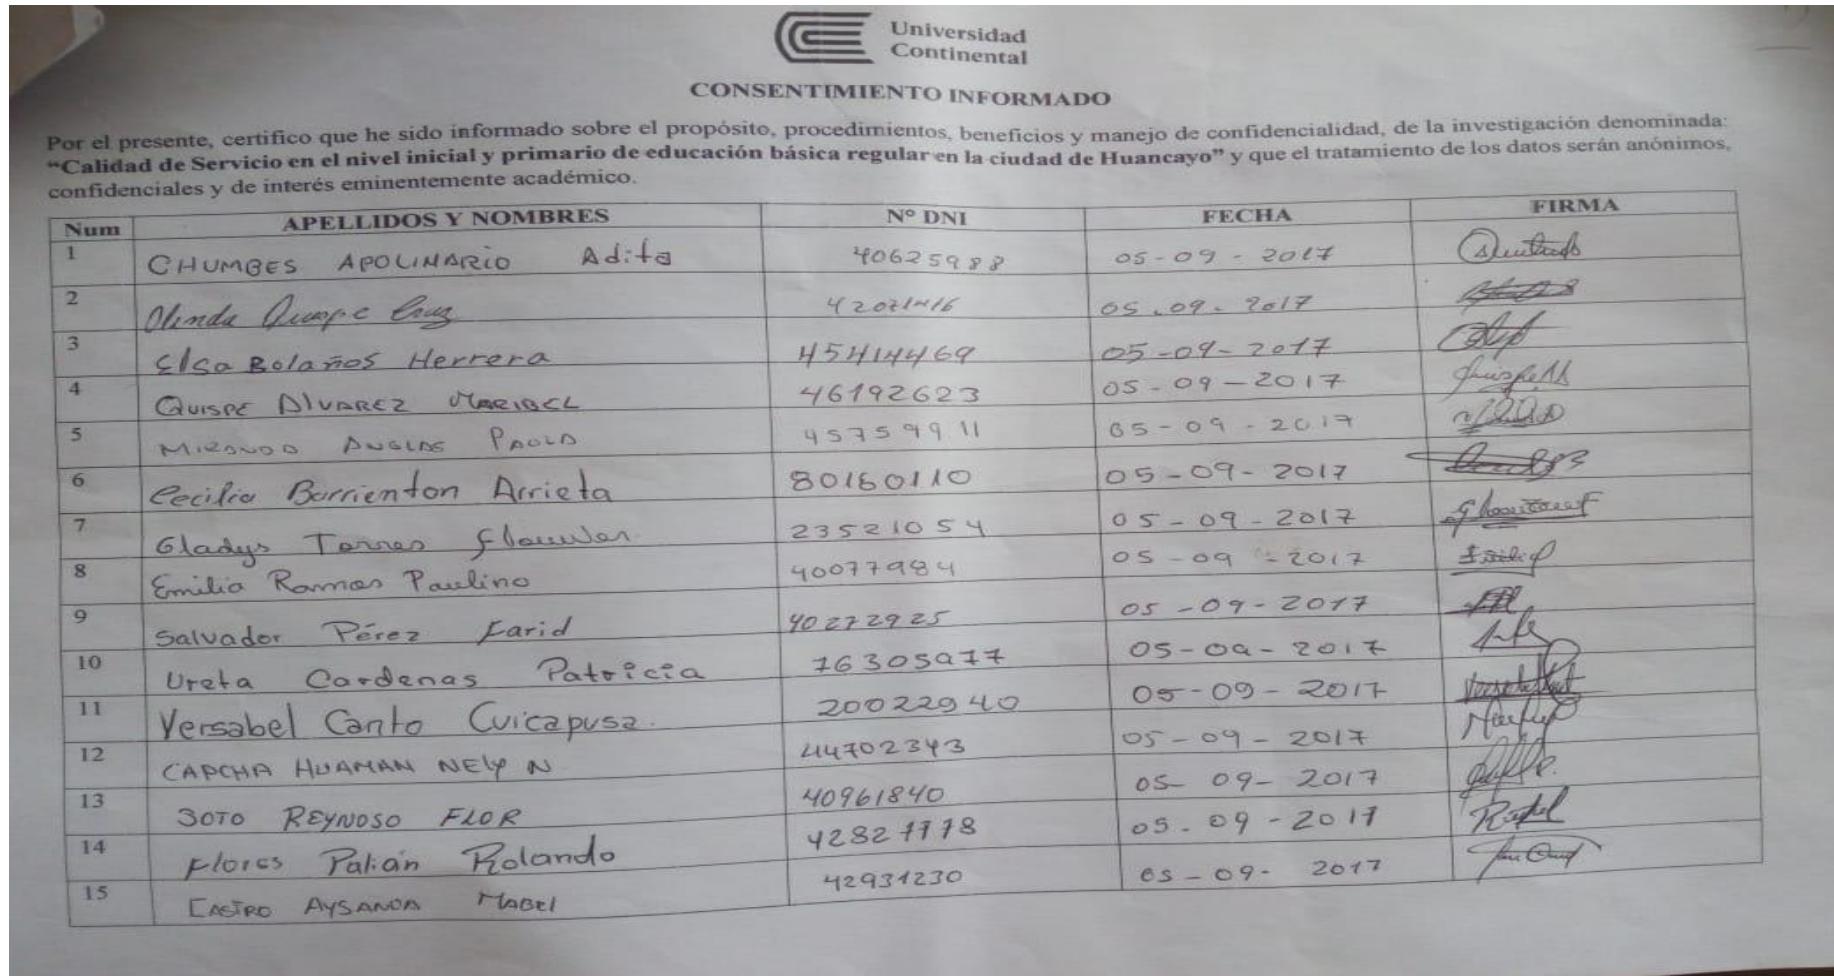 Universidad
Continental
CONSENTIMIENTO INFORMADO
Por el presente, certifico que he sido informado sobre el propósito, procedimientos, beneficios y manejo de confidencialidad, de la investigación denominada:
“Calidad de Servicio en el nivel inicial y primario de educación básica regular en la ciudad de Huancayo” y que el tratamiento de los datos serán anónimos,
confidenciales y de interés eminentemente académico.
Num APELLIDOS Y NOMBRES Nº DNI FECHA FIRMA
1 CHUMBES APOLINARIO Adita 40625988 05-09-2017
2 Olinda Quispe Cruz 05.09.2017
3 Elsa Bolaños Herrera 45414469 05-09-2017
4 QUISPE ALVAREZ MARIBEL 46192623 05-09-2017
5 MIRANDA ANGLAS PAOLA 45759911 05-09-2017
6 Cecilia Barrienton Arrieta 80160110 05-09-2017
7 Gladys Torres 23521054 05-09-2017
8 Emilia Ramos Paulino 40077984 05-09-2017
9 Salvador Pérez Farid 40272925 05-09-2017
10 Ureta Cardenas Patricia 76305977 05-09-2017
11 Versabel Canto Cuicapusa. 20022940 05-09-2017
12 CAPCHA HUAMAN NELY N 44702343 05-09-2017
13 SOTO REYNOSO FLOR 40961840 05-09-2017
14 Flores Palián Rolando 42827778 05-09-2017
15 CASTRO AYSANOA MABEL 42931230 05-09-2017